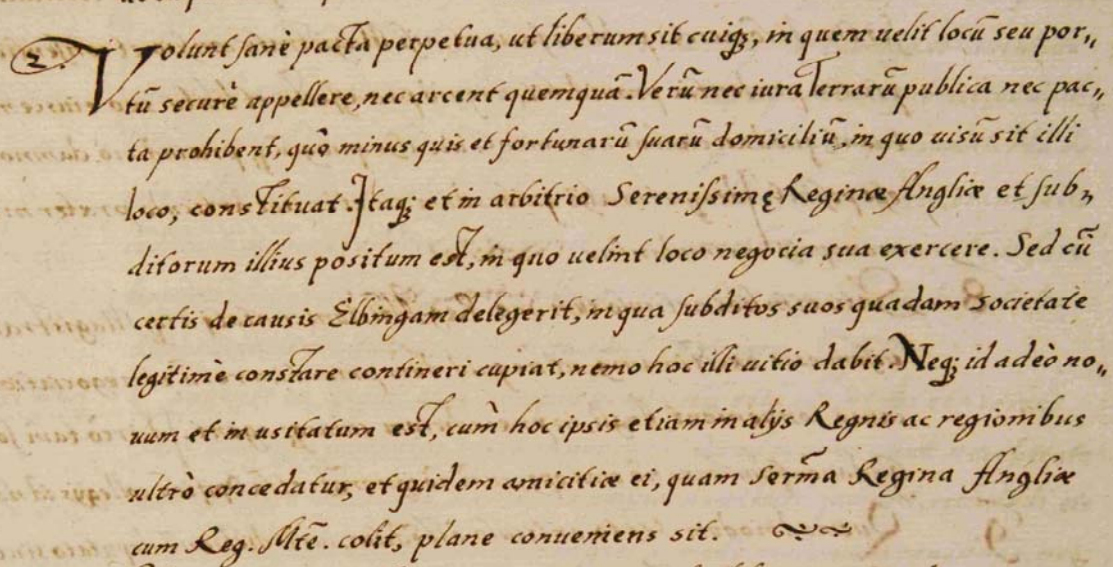 2. Volunt sanè pacta perpetua, ut liberum sit cuiq;, in quem uelit locū seu por„
tū securè appellere, nec arcent quemquā. Verū nec iura Terrarū publica nec pac„
ta prohibent, quò minus quis et fortunarū suarū domiciliū, in quo uisū sit illi
loco, constituat. Itaq; et in arbitrio Serenissimę Reginæ Angliæ et sub„
ditorum illius positum est, in quo uelint loco negocia sua exercere. Sed cū
certis de causis Elbingam delegerit, in qua subditos suos quadam Societate
legitimè constare contineri cupiat, nemo hoc illi uitio dabit. Neq; id adeò no„
uum et inusitatum est, cùm hoc ipsis etiam in alijs Regnis ac regionibus
ultrò concedatur, et quidem amicitiæ ei, quam Serm̄a Regina Angliæ
cum Reg. Mtē. colit, plane conueniens sit.